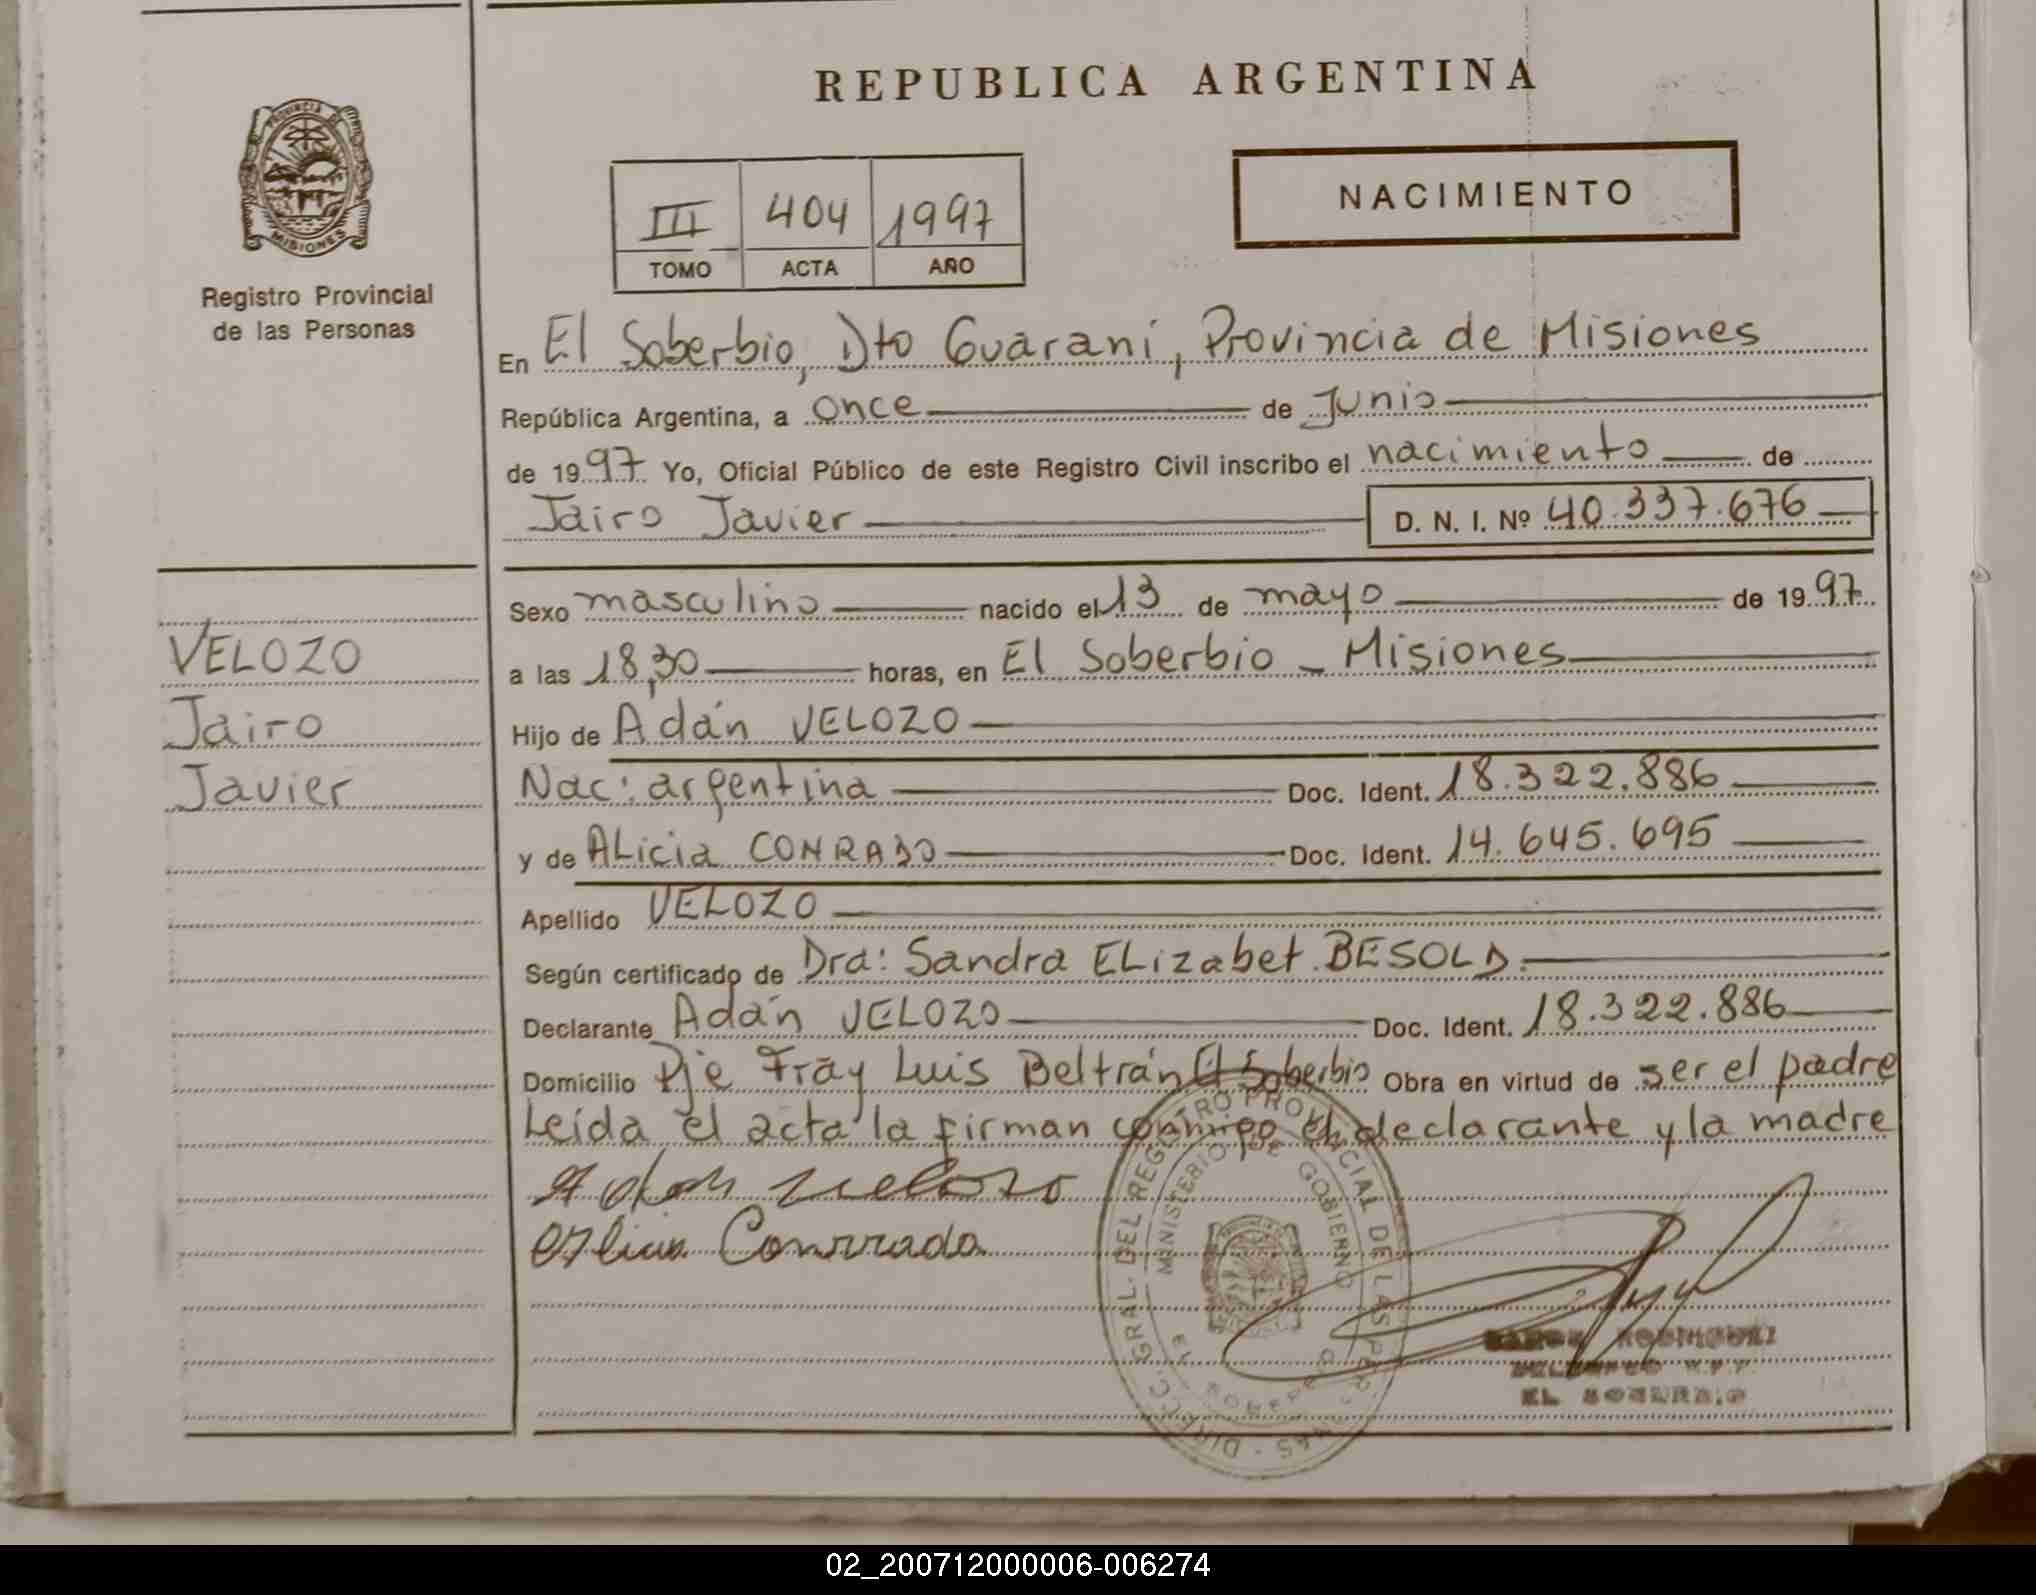 REPUBLICA ARGENTINA
PROVINCIA DE
MISIONES
Registro Provincial
de las Personas
III 404 1997
TOMO ACTA AÑO
NACIMIENTO
En El Soberbio, Dto Guaraní, Provincia de Misiones
República Argentina, a once de Junio
de 1997 Yo, Oficial Público de este Registro Civil inscribo el nacimiento de
Jairo Javier D. N. I. Nº 40.337.676
VELOZO
Jairo
Javier
Sexo masculino nacido el 13 de mayo de 1997
a las 18,30 horas, en El Soberbio - Misiones
Hijo de Adán VELOZO
Nac: argentina Doc. Ident. 18.322.886
y de ALicia CONRADO Doc. Ident. 14.645.695
Apellido VELOZO
Según certificado de Dra: Sandra ELizabet BESOLD.
Declarante Adán VELOZO Doc. Ident. 18.322.886
Domicilio Pje Fray Luis Beltrán El Soberbio Obra en virtud de ser el padre
Leída el acta la firman conmigo el declarante y la madre
Adan velozo
Alicia Conrrado
DIRECC. GRAL. DEL REGISTRO PROVINCIAL DE LAS PERSONAS
MINISTERIO DE GOBIERNO
RAMON RODRIGUEZ
EL SOBERBIO
02_200712000006-006274